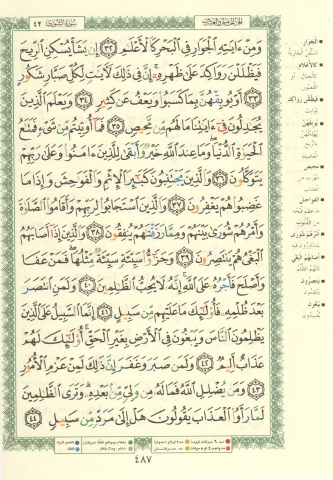 سُورَةُ الشُّورَىٰ ٤٢
وَمِنْ ءَايَٰتِهِ ٱلْجَوَارِ فِى ٱلْبَحْرِ كَٱلْأَعْلَٰمِ ٣٢ إِن يَشَأْ يُسْكِنِ ٱلرِّيحَ
فَيَظْلَلْنَ رَوَاكِدَ عَلَىٰ ظَهْرِهِۦٓ إِنَّ فِى ذَٰلِكَ لَءَايَٰتٍ لِّكُلِّ صَبَّارٍ شَكُورٍ
٣٣ أَوْ يُوبِقْهُنَّ بِمَا كَسَبُوا۟ وَيَعْفُ عَن كَثِيرٍ ٣٤ وَيَعْلَمَ ٱلَّذِينَ
يُجَٰدِلُونَ فِىٓ ءَايَٰتِنَا مَا لَهُم مِّن مَّحِيصٍ ٣٥ فَمَآ أُوتِيتُم مِّن شَىْءٍ فَمَتَٰعُ
ٱلْحَيَوٰةِ ٱلدُّنْيَا وَمَا عِندَ ٱللَّهِ خَيْرٌ وَأَبْقَىٰ لِلَّذِينَ ءَامَنُوا۟ وَعَلَىٰ رَبِّهِمْ
يَتَوَكَّلُونَ ٣٦ وَٱلَّذِينَ يَجْتَنِبُونَ كَبَٰٓئِرَ ٱلْإِثْمِ وَٱلْفَوَٰحِشَ وَإِذَا مَا
غَضِبُوا۟ هُمْ يَغْفِرُونَ ٣٧ وَٱلَّذِينَ ٱسْتَجَابُوا۟ لِرَبِّهِمْ وَأَقَامُوا۟ ٱلصَّلَوٰةَ
وَأَمْرُهُمْ شُورَىٰ بَيْنَهُمْ وَمِمَّا رَزَقْنَٰهُمْ يُنفِقُونَ ٣٨ وَٱلَّذِينَ إِذَآ أَصَابَهُمُ
ٱلْبَغْىُ هُمْ يَنتَصِرُونَ ٣٩ وَجَزَٰٓؤُا۟ سَيِّئَةٍ سَيِّئَةٌ مِّثْلُهَا فَمَنْ عَفَا
وَأَصْلَحَ فَأَجْرُهُۥ عَلَى ٱللَّهِ إِنَّهُۥ لَا يُحِبُّ ٱلظَّٰلِمِينَ ٤٠ وَلَمَنِ ٱنتَصَرَ
بَعْدَ ظُلْمِهِۦ فَأُو۟لَٰٓئِكَ مَا عَلَيْهِم مِّن سَبِيلٍ ٤١ إِنَّمَا ٱلسَّبِيلُ عَلَى ٱلَّذِينَ
يَظْلِمُونَ ٱلنَّاسَ وَيَبْغُونَ فِى ٱلْأَرْضِ بِغَيْرِ ٱلْحَقِّ أُو۟لَٰٓئِكَ لَهُمْ
عَذَابٌ أَلِيمٌ ٤٢ وَلَمَن صَبَرَ وَغَفَرَ إِنَّ ذَٰلِكَ لَمِنْ عَزْمِ ٱلْأُمُورِ
٤٣ وَمَن يُضْلِلِ ٱللَّهُ فَمَا لَهُۥ مِن وَلِىٍّ مِّنۢ بَعْدِهِۦ وَتَرَى ٱلظَّٰلِمِينَ
لَمَّا رَأَوُا۟ ٱلْعَذَابَ يَقُولُونَ هَلْ إِلَىٰ مَرَدٍّ مِّن سَبِيلٍ ٤٤
٤٨٧
الجوار
كالأعلام
فيظللن رواكد
يوبقهن
محيص
الفواحش
أمرهم شورى
أصابهم البغي
ينتصرون
يبغون